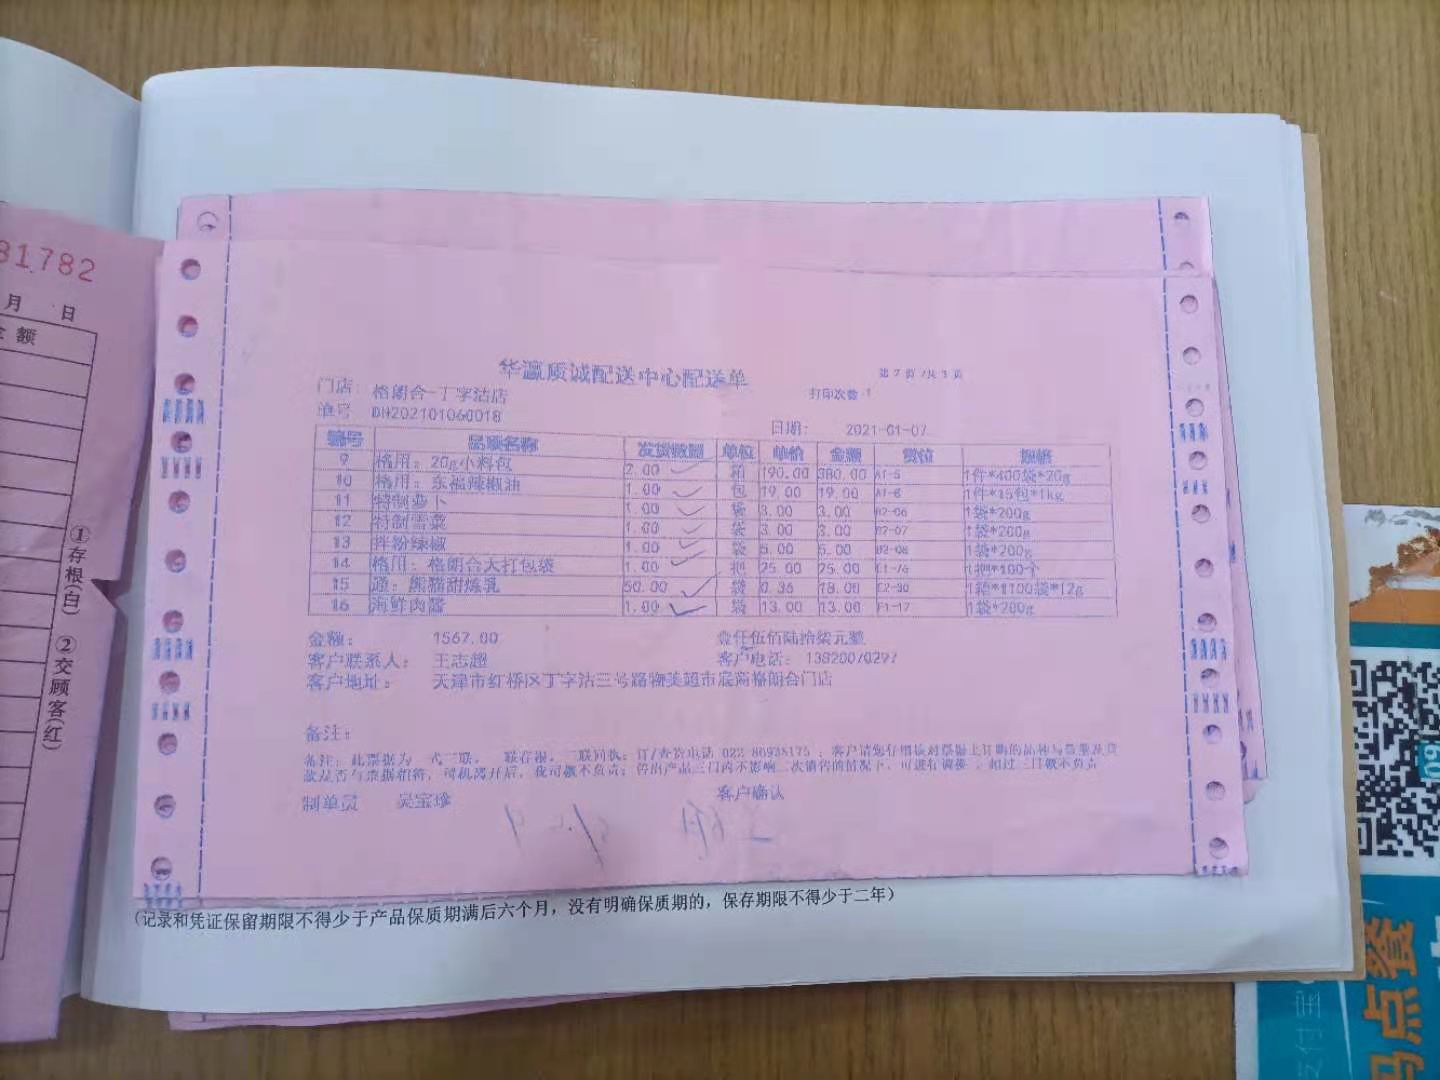 81782
月 日
金额
①存根(白) ②交顾客(红)
华瀛质诚配送中心配送单
第 2 页 /共 3 页
门店: 格朗合-丁字沽店
打印次数 1
单号 DH202101060018
日期: 2021-01-07
编号 品项名称 发货数量 单位 单价 金额 货位 规格
9 格用: 20g小料包 2.00 箱 190.00 380.00 A1-5 1件*400袋*20g
10 格用: 东福辣椒油 1.00 包 19.00 19.00 A1-6 1件*15包*1kg
11 特制萝卜 1.00 袋 3.00 3.00 B2-06 1袋*200g
12 特制雪菜 1.00 袋 3.00 3.00 B2-07 1袋*200g
13 拌粉辣椒 1.00 袋 5.00 5.00 B2-08 1袋*200g
14 格用: 格朗合大打包袋 1.00 把 25.00 25.00 1把*100个
15 通: 熊猫甜炼乳 50.00 袋 0.36 18.00 C2-30 1箱*1100袋*12g
16 海鲜肉酱 1.00 袋 13.00 13.00 F1-17 1袋*200g
金额: 1567.00 壹仟伍佰陆拾柒元整
客户联系人: 王志超 客户电话: 13820070297
客户地址: 天津市红桥区丁字沽三号路物美超市底商格朗合门店
备注:
备注: 此票据为一式三联, 联存根, 二联回执; 订/查货电话 022-86938175 ; 客户请您仔细核对票据上订购的品种与数量及货
款是否与票据相符, 司机离开后, 我司概不负责; 售出产品三日内不影响二次销售的情况下, 可进行调换, 超过三日概不负责
制单员 吴宝珍 客户确认
(记录和凭证保留期限不得少于产品保质期满后六个月，没有明确保质期的，保存期限不得少于二年)
码点餐
支付宝